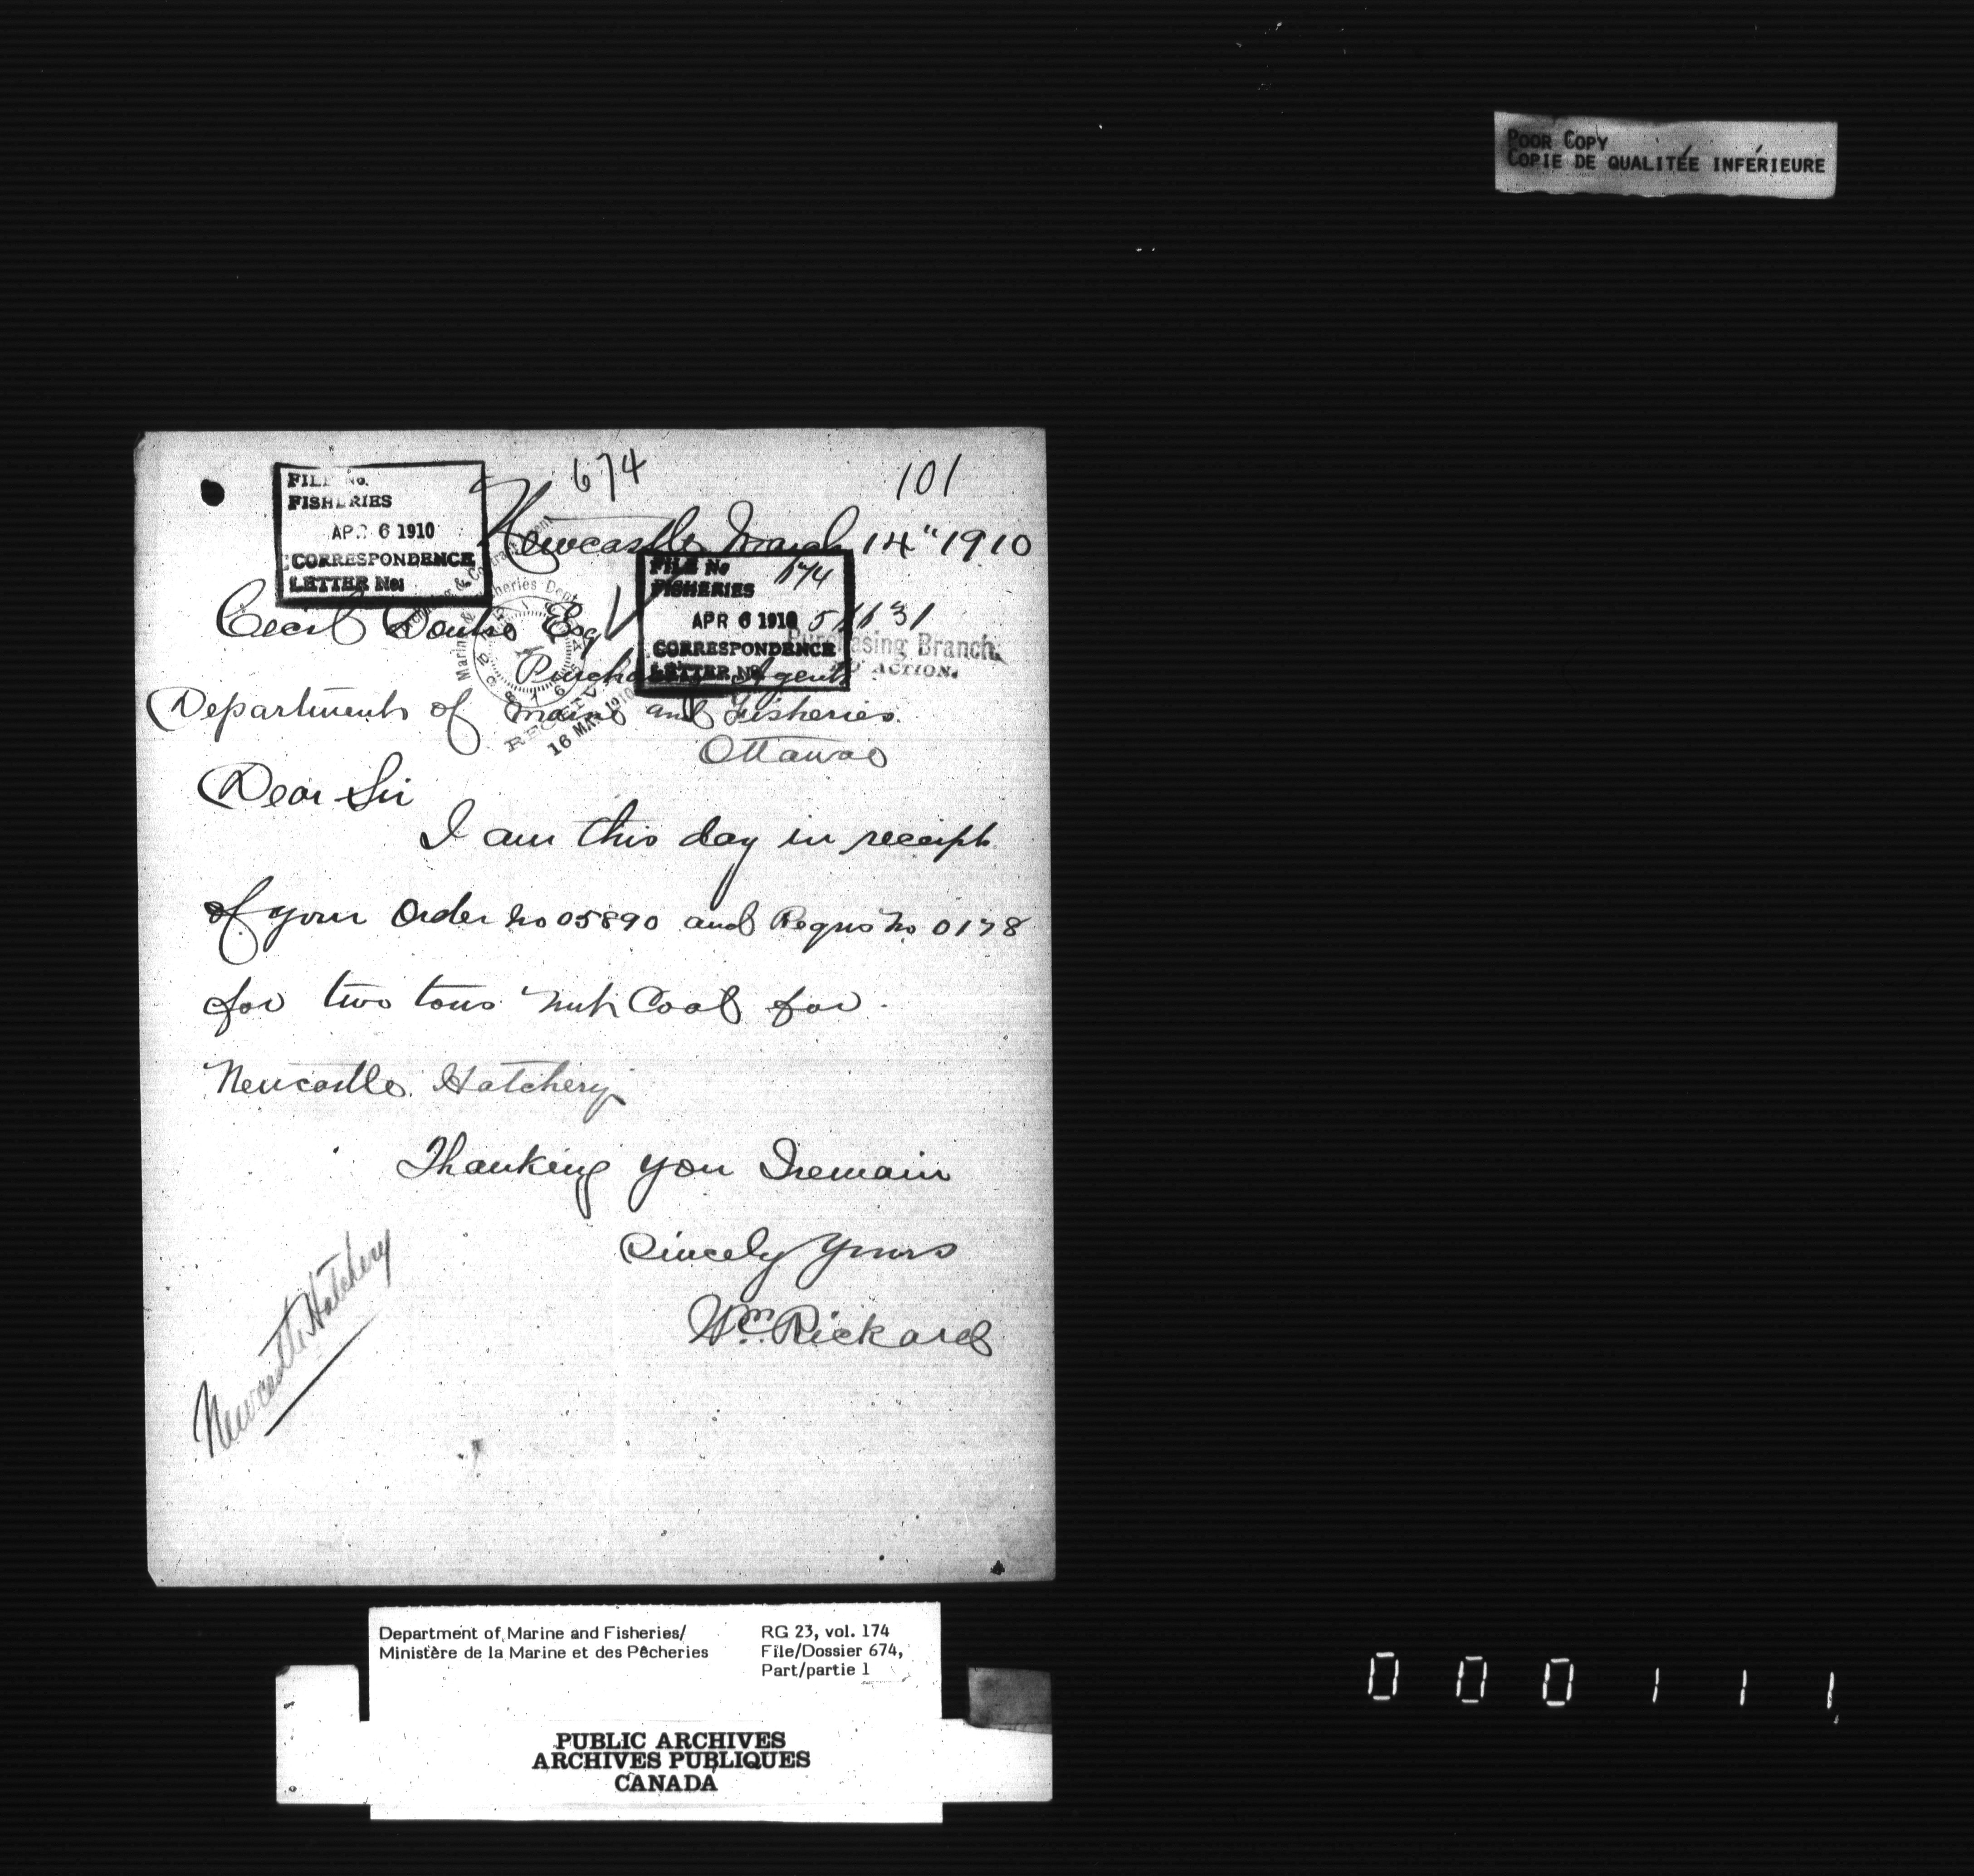 POOR COPY
COPIE DE QUALITÉE INFÉRIEURE
674
101
FILE No.
FISHERIES
APR 6 1910
CORRESPONDENCE
LETTER No.
Newcastle March 14" 1910
FILE No 674
FISHERIES
APR 6 1910
CORRESPONDENCE
LETTER No.
Purchasing Branch.
ACTION.
Marine & Fisheries Dept
RECEIVED
16 MAR 1910
Cecil Doutre Esq
Purchasing Agent
Department of Marine and Fisheries.
Ottawa
Dear Sir
I am this day in receipt
of your Order No 05890 and Requis No 0178
for two tons Nut Coal for
Newcastle Hatchery
Thanking you I remain
Sincely Yours
Wm. Rickard
Newcastle Hatchery
Department of Marine and Fisheries/
Ministère de la Marine et des Pêcheries
RG 23, vol. 174
File/Dossier 674,
Part/partie 1
PUBLIC ARCHIVES
ARCHIVES PUBLIQUES
CANADA
000111